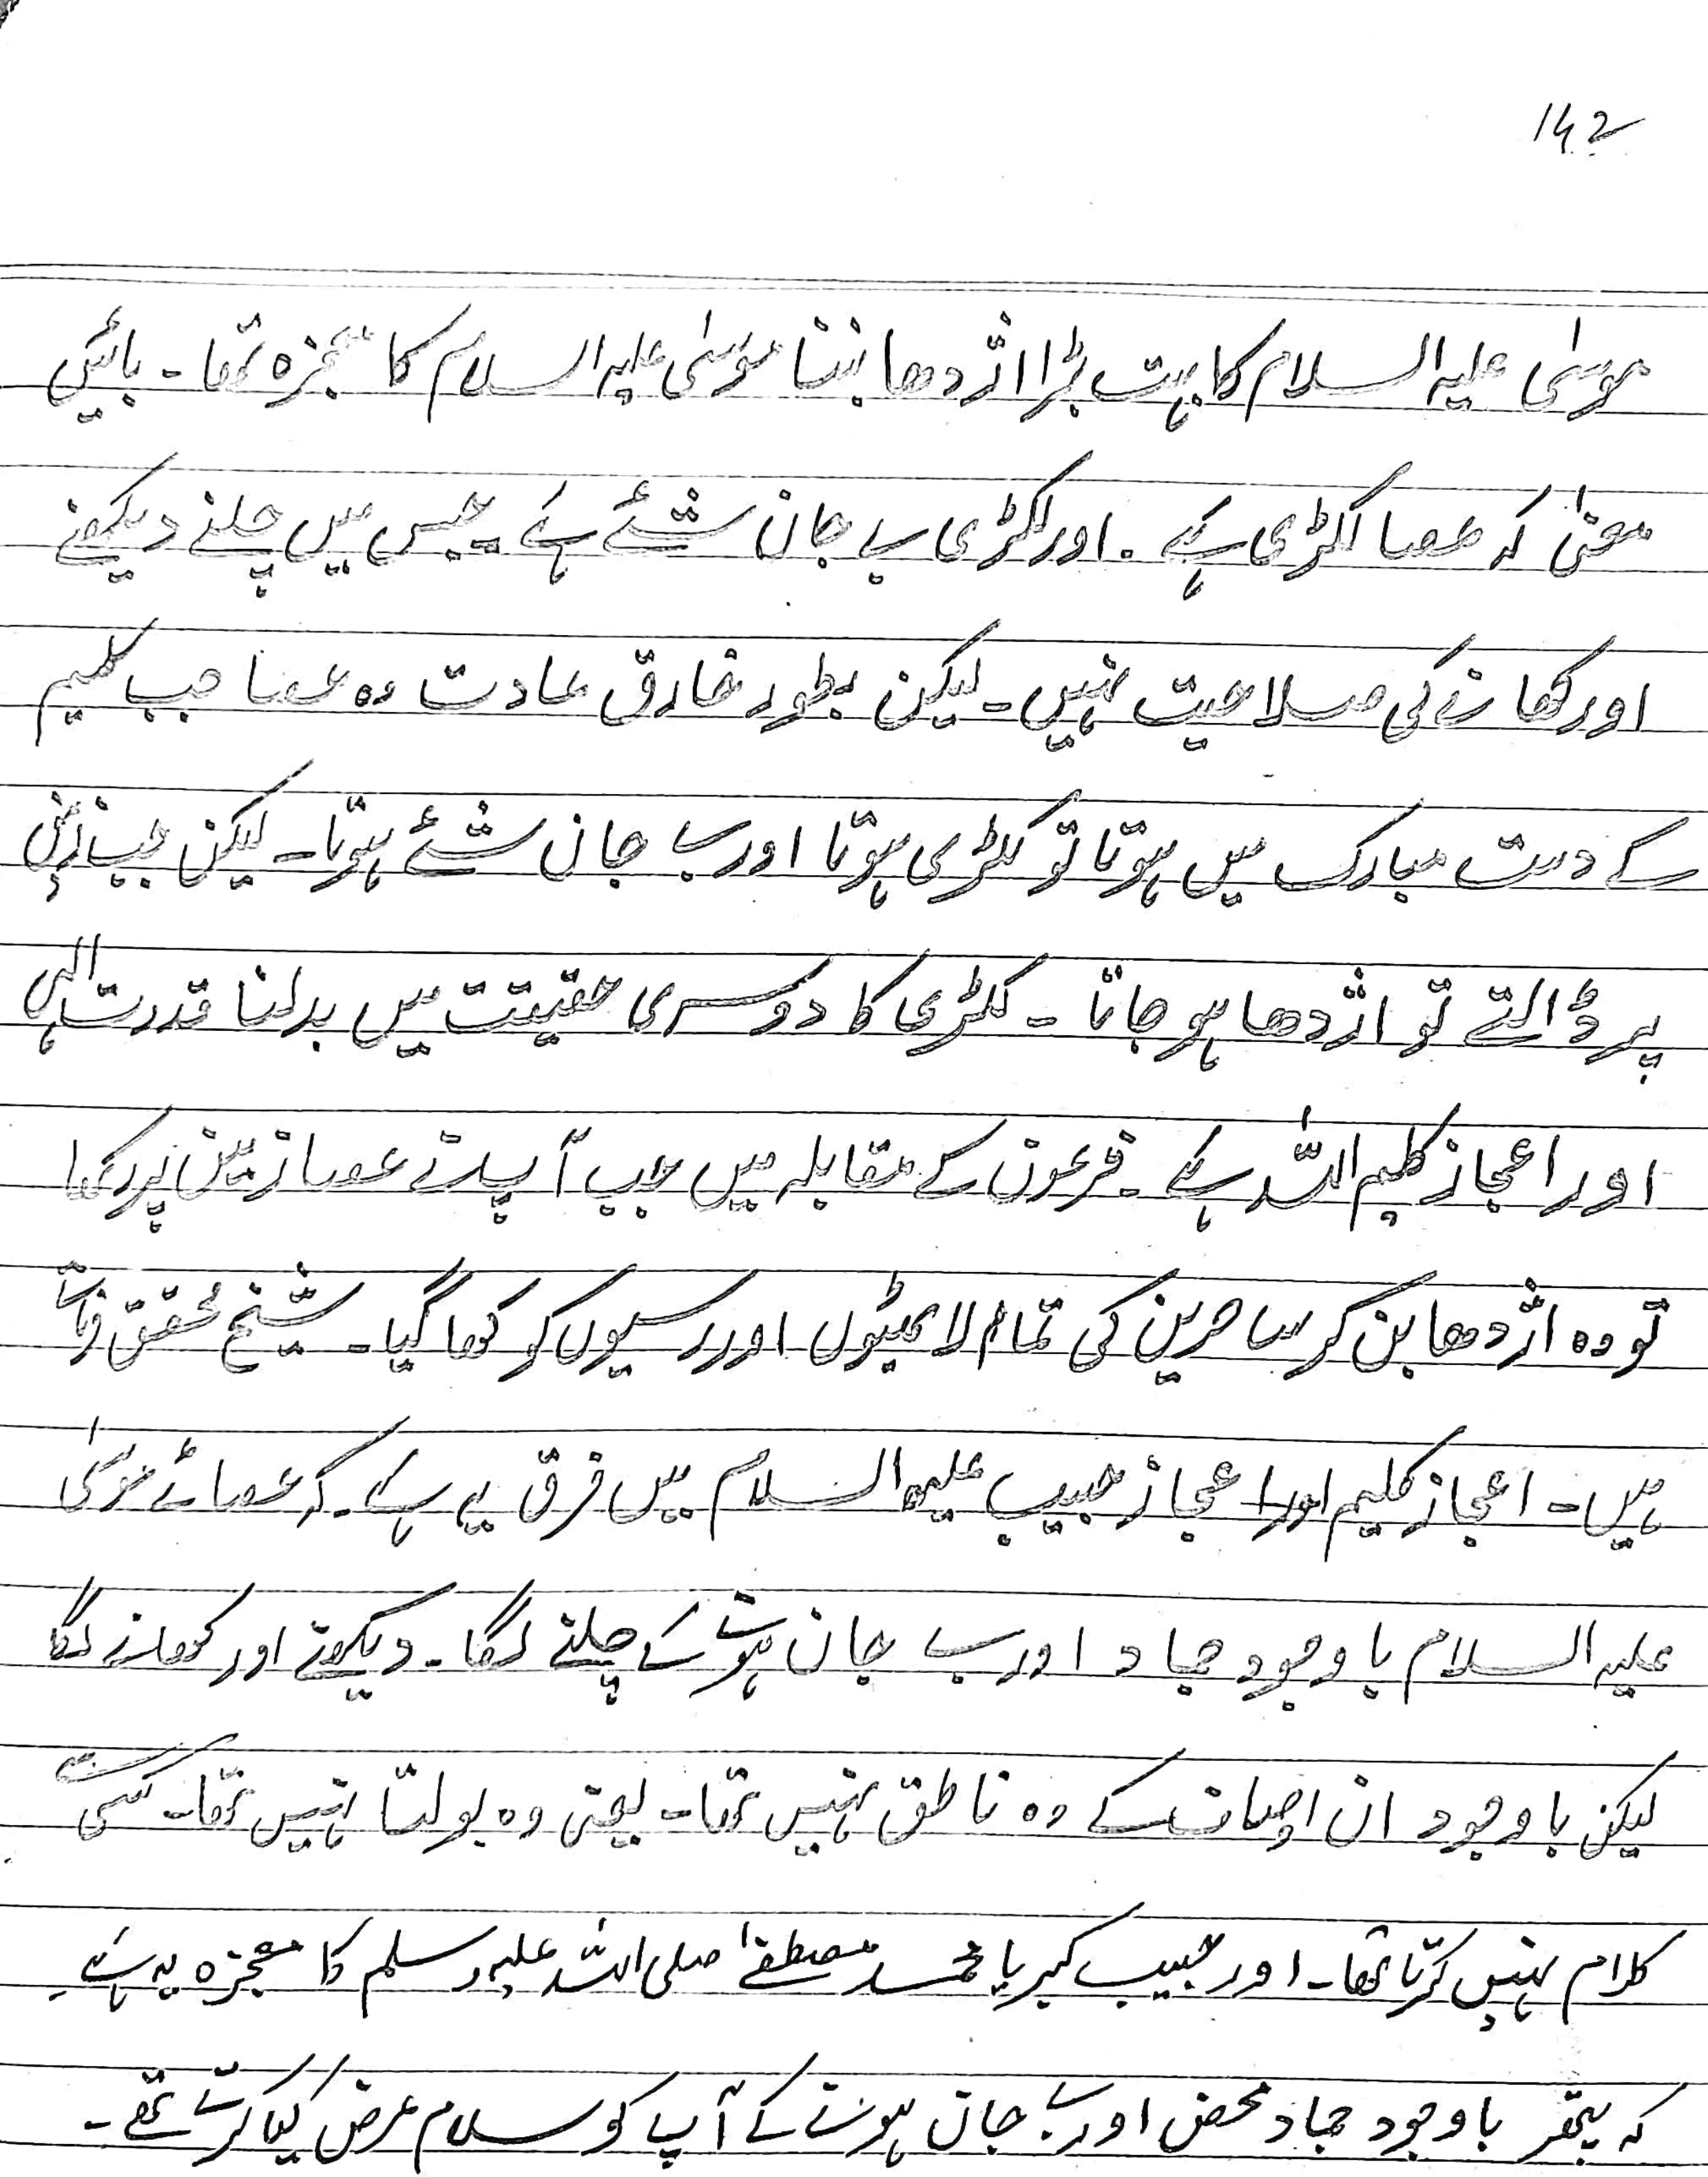 142
موسٰی علیہ السلام کا بہت بڑا اژدھا بننا موسٰی علیہ السلام کا معجزہ تھا۔ بائیں
معنٰی کہ عصا لکڑی ہے۔ اور لکڑی بے جان شئے ہے۔ جس میں چلنے دیکھنے
اور کھانے کی صلاحیت نہیں۔ لیکن بطور خارق عادت وہ عصا جب کلیم
کے دست مبارک میں ہوتا تو لکڑی ہوتا اور بے جان شئے ہوتا۔ لیکن جب زمین
پر ڈالتے تو اژدھا ہو جاتا۔ لکڑی کا دوسری حقیقت میں بدلنا قدرت الہی
اور اعجاز کلیم اللہ ہے۔ فرعون کے مقابلہ میں جب آپ نے عصا زمین پر رکھا
تو وہ اژدھا بن کر ساحرین کی تمام لاٹھیوں اور رسیوں کو کھا گیا۔ شیخ محقق فرماتے
ہیں۔ اعجاز کلیم اور اعجاز حبیب علیہ السلام میں فرق یہ ہے۔ کہ عصائے موسٰی
علیہ السلام باوجود جماد اور بے جان ہونے کے چلنے لگا۔ دیکھنے اور کھانے لگا
لیکن باوجود ان اوصاف کے وہ ناطق نہیں تھا۔ یعنی وہ بولتا نہیں تھا۔ کسی سے
کلام نہیں کرتا تھا۔ اور حبیب کبریا محمد مصطفٰے صلی اللہ علیہ وسلم کا معجزہ یہ ہے
کہ پتھر باوجود جماد محض اور بے جان ہونے کے آپ کو سلام عرض کیا کرتے تھے۔